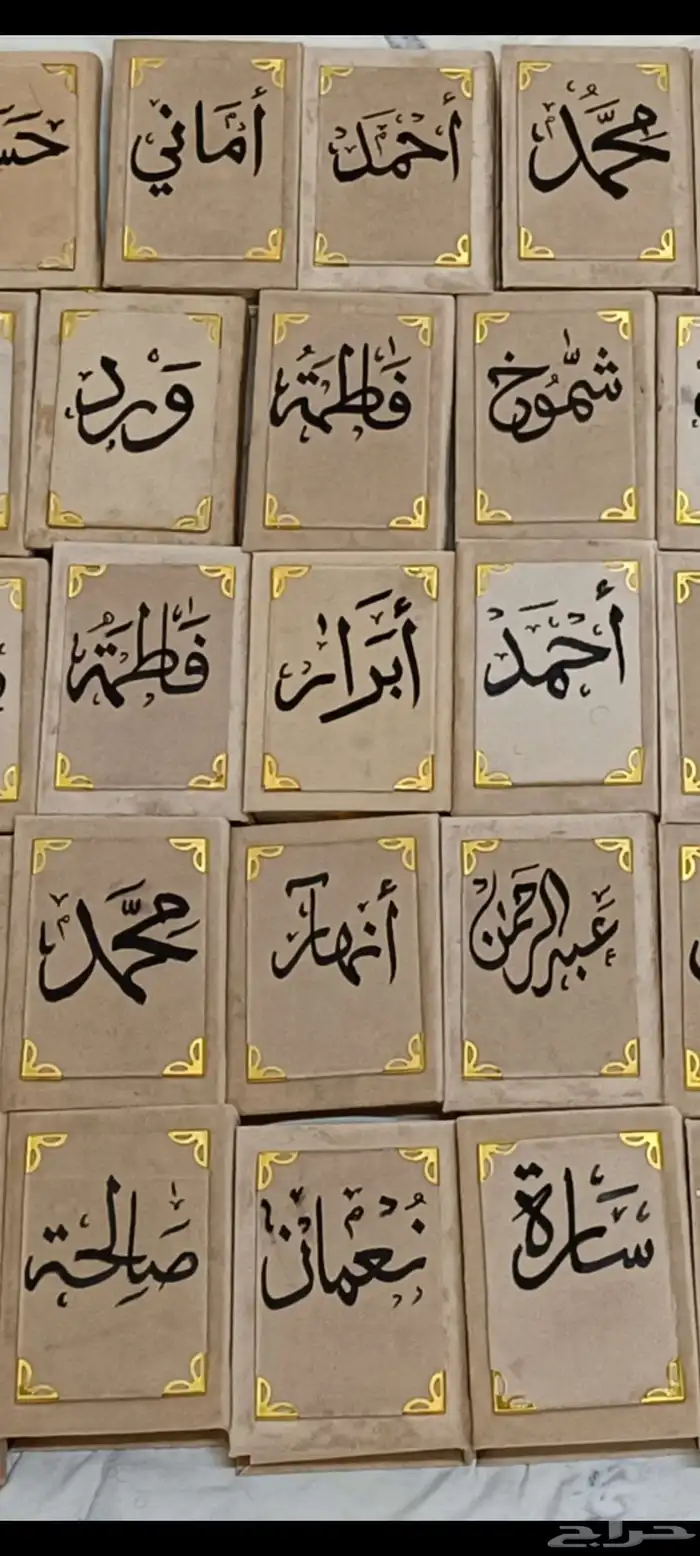 مُحَمَّد أَحْمَد أَمَاني
شَمُّوخ فَاطِمَةُ وَرد
أَحْمَد أَبْرَار فَاطِمَةُ
عَبدالرحمن أنهار مُحَمَّد
سَارَة نُعمان صَالحة
حراج